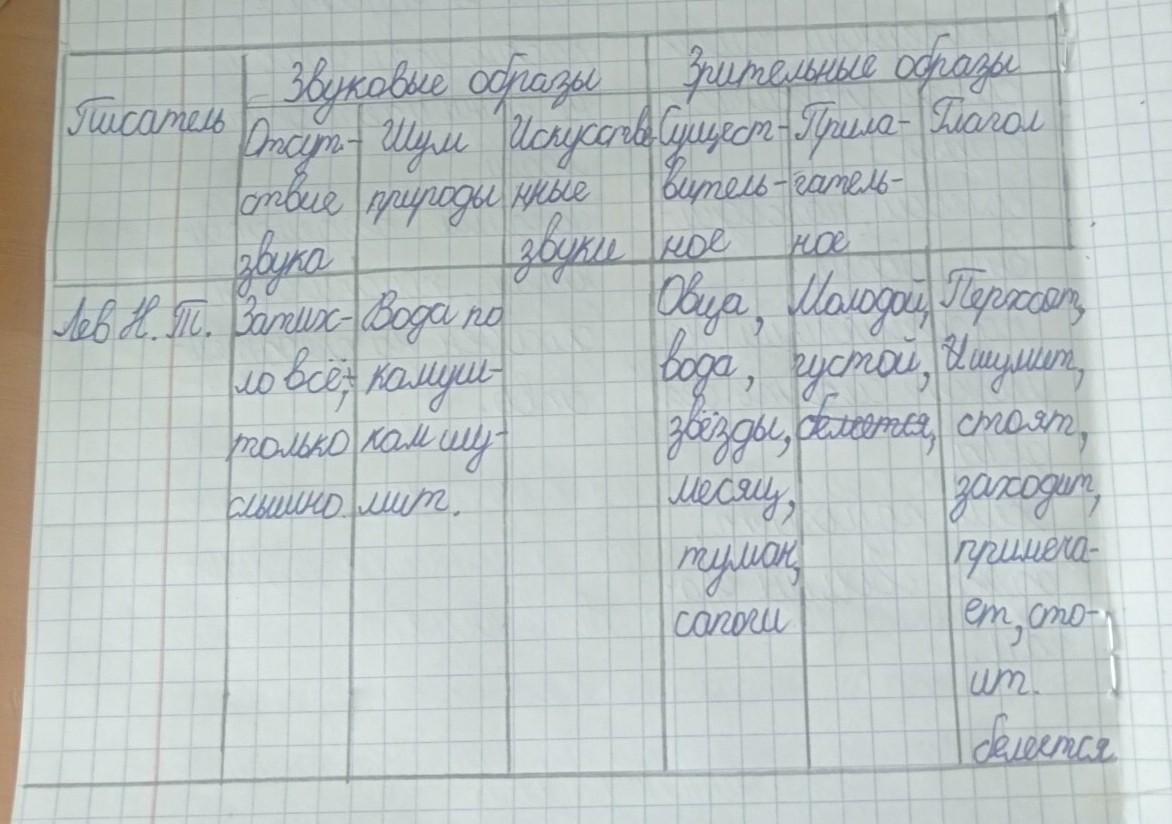 Звуковые образы
Зрительные образы
Писатель
Отсут-
ствие
звука
Шум
природы
Искусстве
нные
звуки
Сущест-
витель-
ное
Прила-
гатель-
ное
Глагол
Лев Н. Т.
Затих-
ло всё,
только
слышно.
Вода по
камуш-
кам шу-
мит.
Овца,
вода,
звёзды,
месяц,
туман,
сапоги
Молодой,
густой,
белеется,
Перхает,
И шумит,
стоят,
заходит,
примеча-
ет, сто-
ит.
белеется